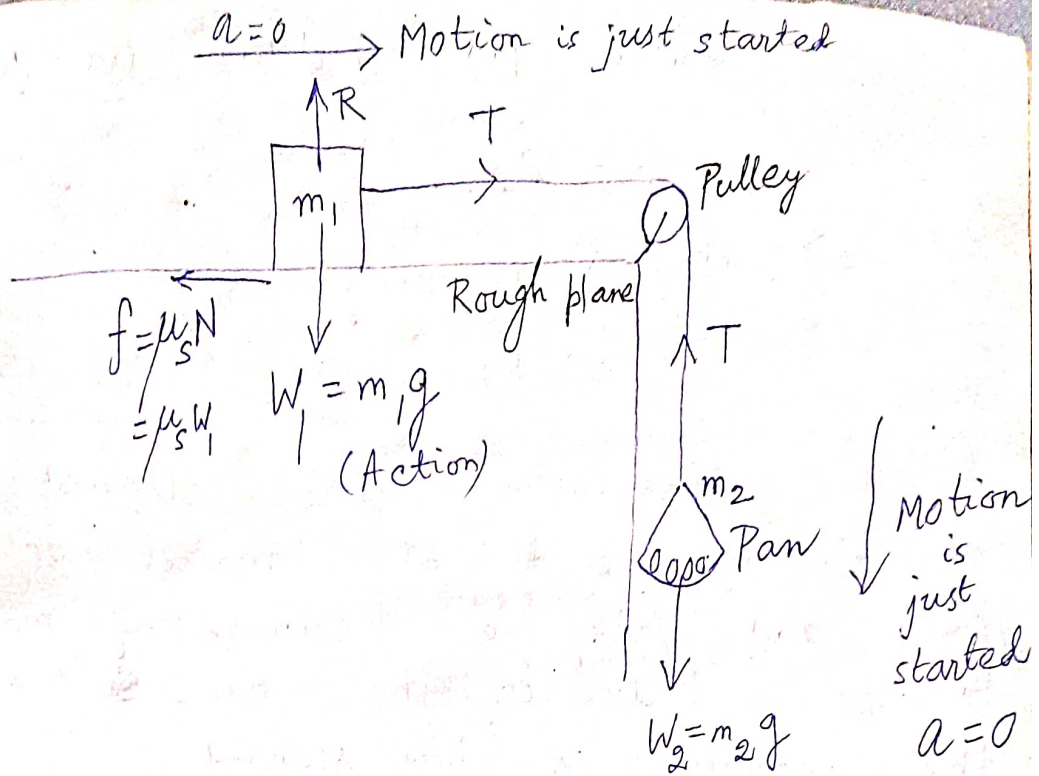 a=0
Motion is just started
R
T
Pulley
m₁
Rough plane
f=μₛN
=μₛW₁
W₁=m₁g
(Action)
T
m₂
Pan
Motion
is
just
started
a=0
W₂=m₂g